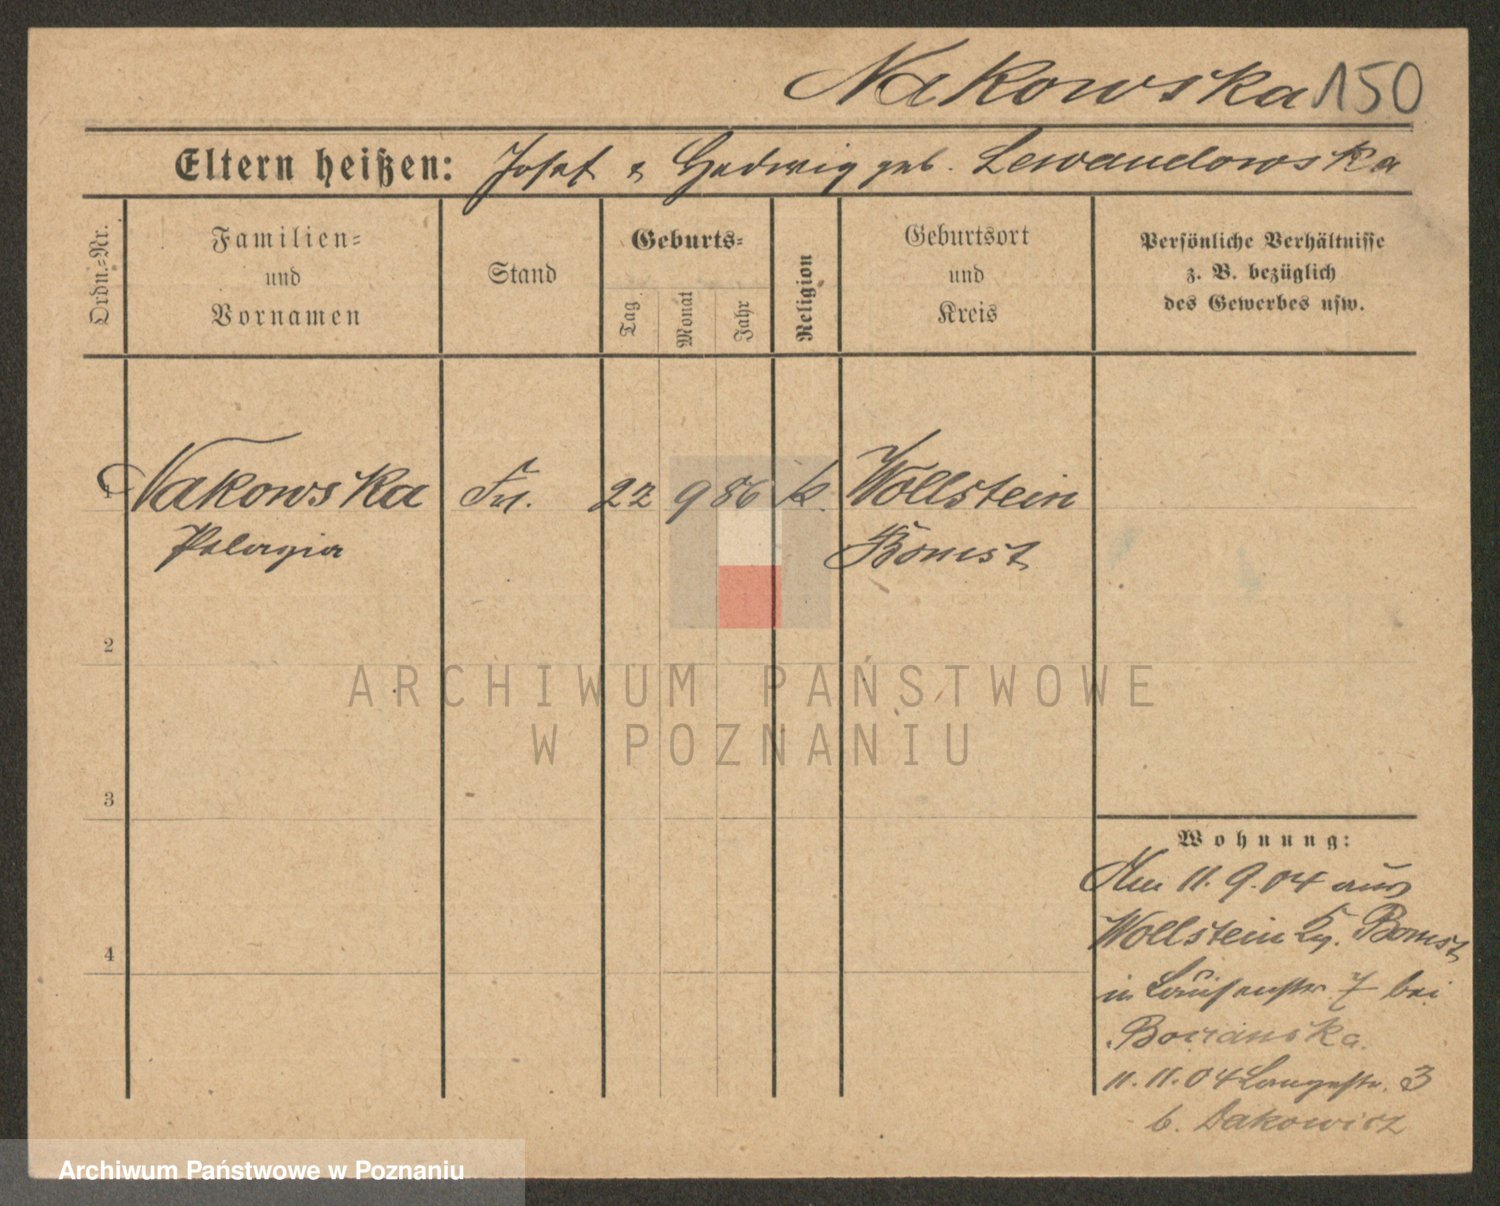 Nakowska 150
Eltern heißen: Josef & Hedwig geb. Lewandowska
Ordn.-Nr.
Familien-
und
Vornamen
Stand
Geburts-
Tag
Monat
Jahr
Religion
Geburtsort
und
Kreis
Persönliche Verhältnisse
z. B. bezüglich
des Gewerbes usw.
1 Nakowska Frl. 22 9 86 k. Wollstein
Pelagia Bomst
2
ARCHIWUM PAŃSTWOWE
W POZNANIU
3
Wohnung:
Am 11.9.04 aus
Wollstein Kr. Bomst
in Louisenstr 7 bei
11.11.04 Langestr. 3
b. Dakowicz
4
Archiwum Państwowe w Poznaniu